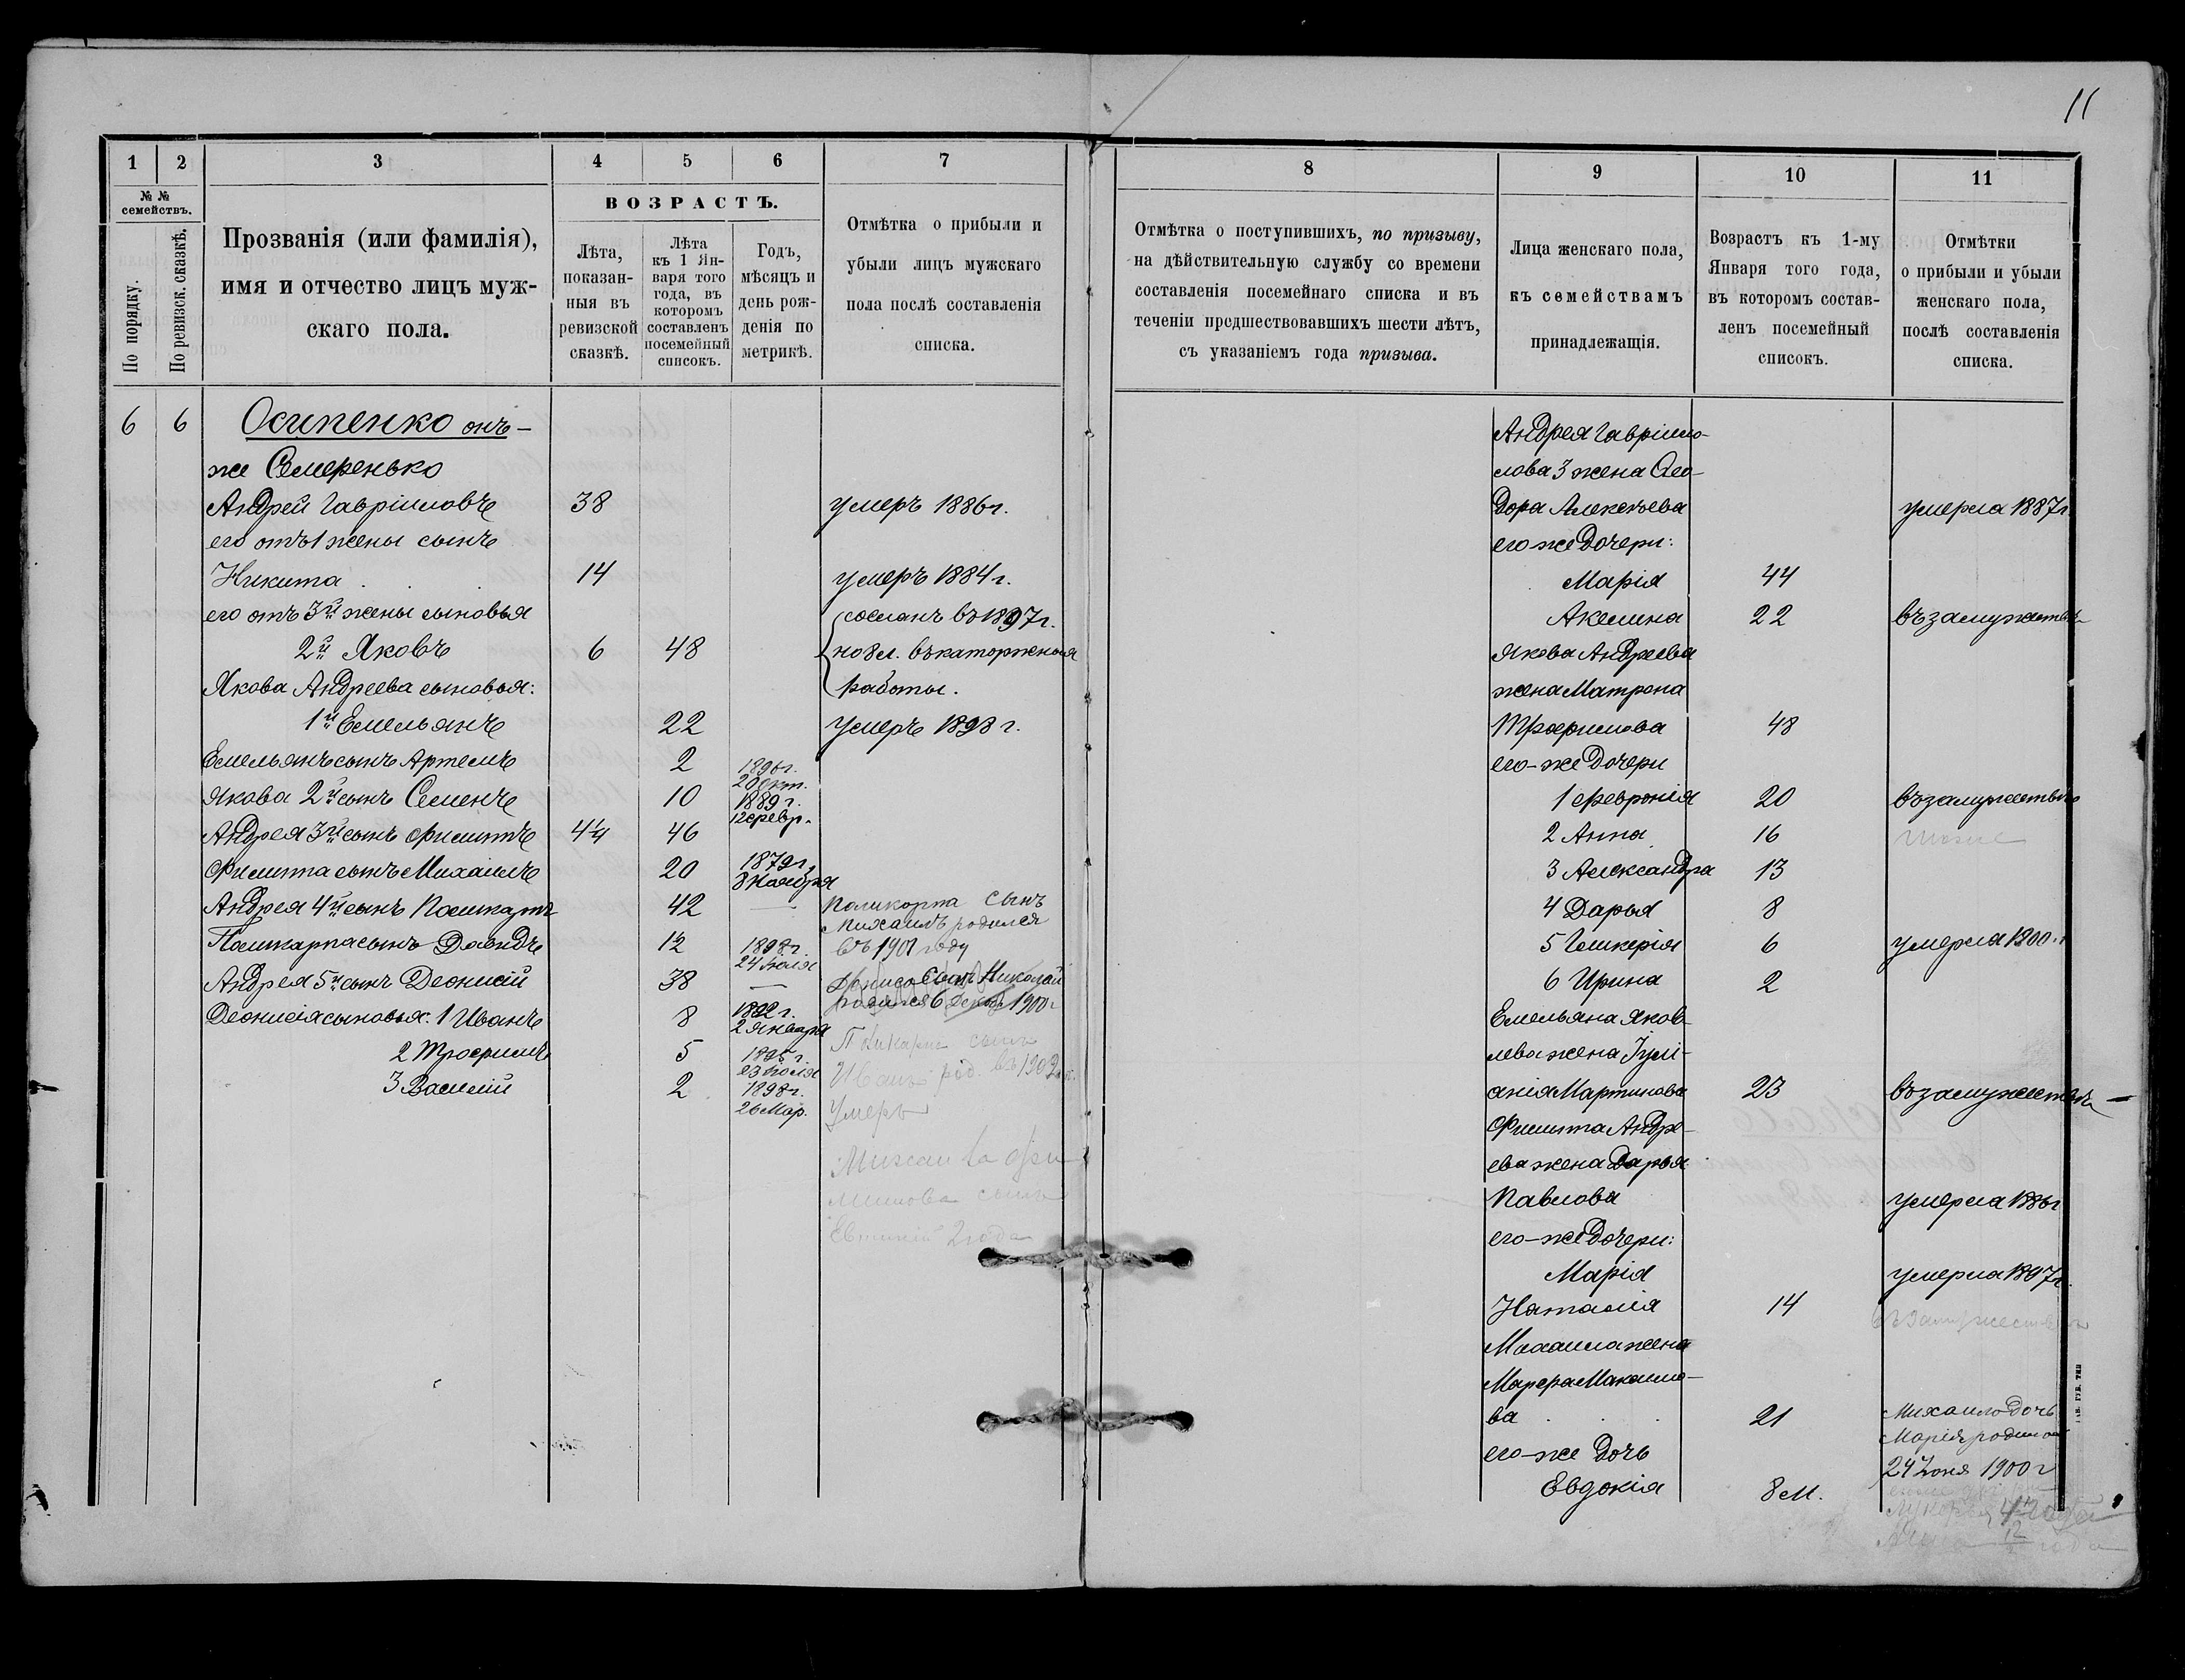 11
1 2 3 4 5 6 7
№ № семействъ.
По порядку.
По ревизск. сказкѣ.
Прозванія (или фамилія),
имя и отчество лицъ муж-
скаго пола.
ВОЗРАСТЪ.
Лѣта,
показан-
ныя въ
ревизской
сказкѣ.
Лѣта
къ 1 Ян-
варя того
года, въ
которомъ
составленъ
посемейный
списокъ.
Годъ,
мѣсяцъ и
день рож-
денія по
метрикѣ.
Отмѣтка о прибыли и
убыли лицъ мужскаго
пола послѣ составленія
списка.
6 6 Осипенко онъ-
же Семеренько
Андрей Гавріиловъ 38 умеръ 1886 г.
его отъ 1 жены сынъ
Никита 14 умеръ 1884 г.
его отъ 3й жены сыновья сосланъ въ 1897 г.
2й Яковъ 6 48 въ каторжныя
Якова Андреева сыновья: работы.
1й Емельянъ 22 умеръ 1898 г.
Емельянъ сынъ Артемъ 2 1896 г.
20 Окт.
Якова 2й сынъ Семенъ 10 1889 г.
12 февр.
Андрея 3й сынъ Филиппъ 4 1/4 46
Филиппа сынъ Михаилъ 20 1879 г.
8 Ноября
Андрея 4й сынъ Поликарпъ 42 — Поликарпа сынъ
Михаилъ родился
Поликарпа сынъ Давидъ 1/2 1898 г. въ 1901 году
24 Іюля
Андрея 5й сынъ Деонисій 38 — Дениса сынъ Николай
родился 6 Декаб 1900 г
Деонисія сыновья: 1 Иванъ 8 1892 г.
2 Января
2 Трофимъ 5 1895 г. Поликарпъ сынъ
23 Іюля Иванъ род. въ 1902 г.
3 Василій 2 1898 г.
26 Мар. Умеръ
Михаила Фи
липпова сынъ
Евтихій 2 года
8 9 10 11
Отмѣтка о поступившихъ, по призыву,
на дѣйствительную службу со времени
составленія посемейнаго списка и въ
теченіи предшествовавшихъ шести лѣтъ,
съ указаніемъ года призыва.
Лица женскаго пола,
къ семействамъ
принадлежащія.
Возрастъ къ 1-му
Января того года,
въ которомъ состав-
ленъ посемейный
списокъ.
Отмѣтки
о прибыли и убыли
женскаго пола,
послѣ составленія
списка.
Андрея Гавріило-
лова 3 жена Ѳео-
дора Алексѣева умерла 1887 г.
его же дочери:
Марія 44
Акилина 22 въ замужествѣ
Якова Андреева
жена Матрона
Трофимова 48
его-же дочери
1 Февронія 20 въ замужествѣ
2 Анна 16 тоже
3 Александра 13
4 Дарья 8
5 Гликерія 6 умерла 1900 г
6 Ирина 2
Емельяна Яков-
лева жена Іулі-
анія Мартинова 23 въ замужествѣ —
Филиппа Андре-
ева жена Дарья
Павлова умерла 1886 г
его-же дочери:
Марія умерла 1897 г.
Наталія 14 въ замужествѣ
Михаила жена
Марфа Макаимо-
ва 21 Михаило дочь
Марія родилась
его-же дочь 24 Іюня 1900 г
Евдокія 8 м.